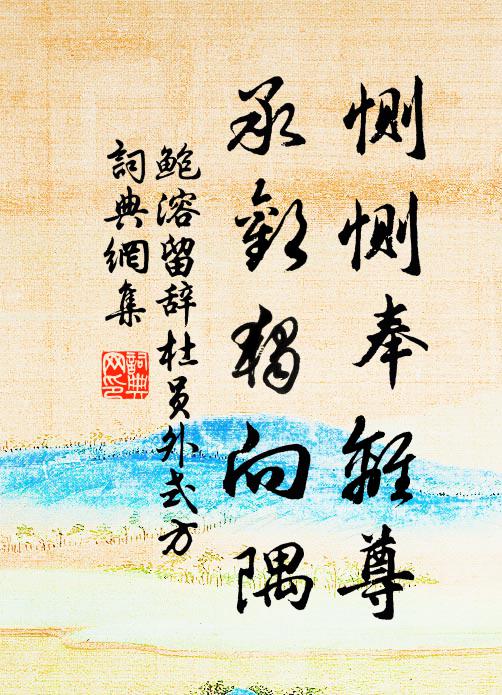 惻惻奉離尊
承歡獨向隅
鮑溶留辞杜員外式方
詞典網集
詞典網印